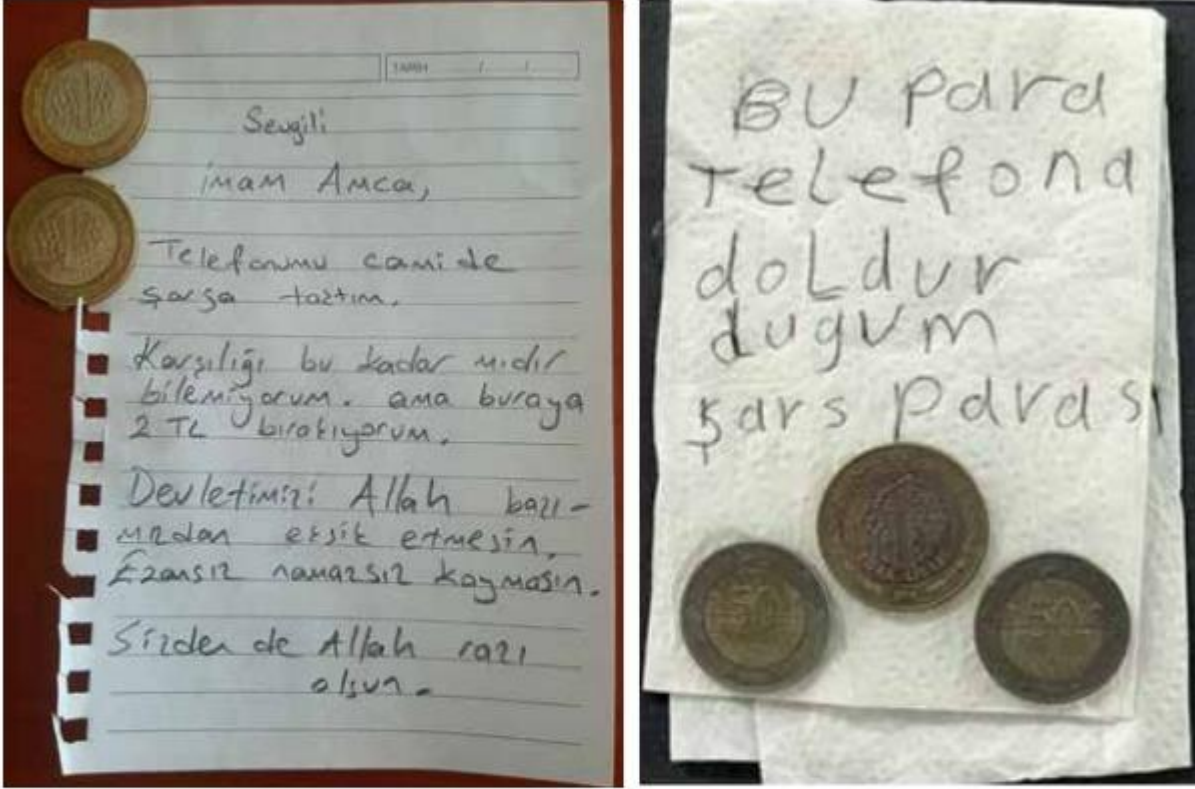 TARİH / /
Sevgili
imam Amca,
Telefonumu camide
şarja taktım.
Karşılığı bu kadar mıdır
bilemiyorum. ama buraya
2 TL bırakıyorum.
Devletimizi Allah başı-
mızdan eksik etmesin.
Ezansız namazsız koymasın.
Sizden de Allah razı
olsun.
BU Para
Telefona
doLdur
dugum
şars Parası
50
50